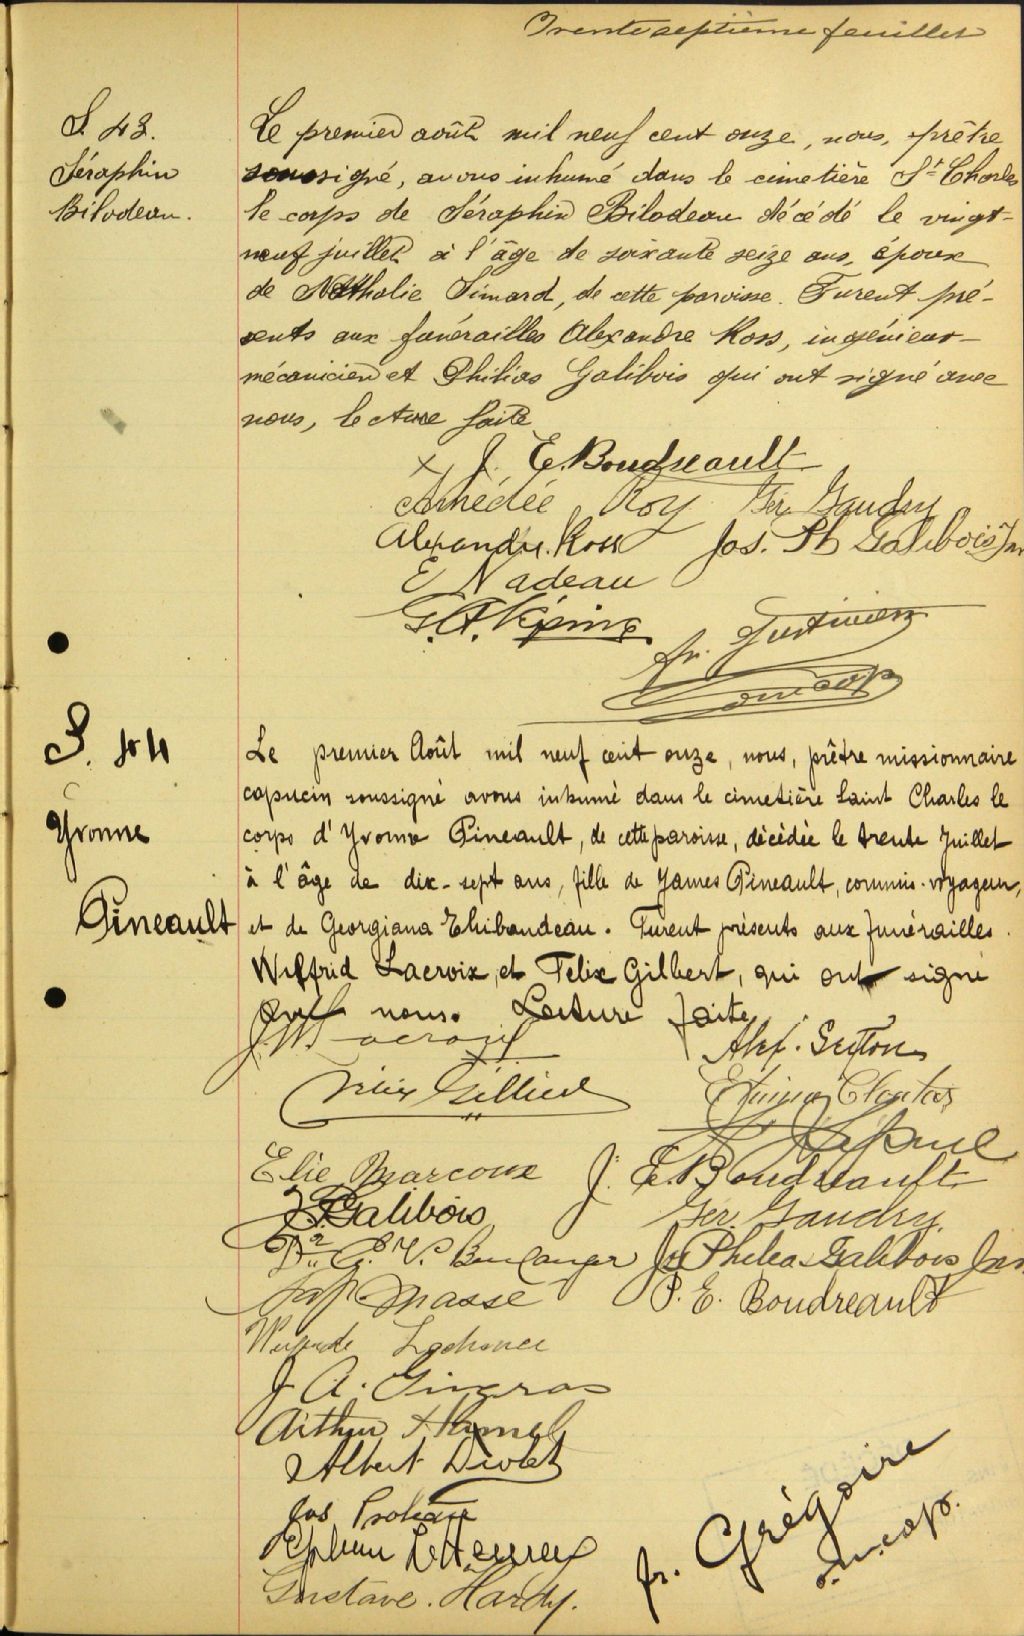 Trente septième feuillet
S. 43.
Séraphin
Bilodeau.
Le premier août mil neuf cent onze, nous, prêtre
soussigné, avons inhumé dans le cimetière St Charles
le corps de Séraphin Bilodeau décédé le vingt-
neuf juillet à l'âge de soixante seize ans, époux
de Nathalie Simard, de cette paroisse. Furent pré-
sents aux funérailles Alexandre Ross, ingénieur-
mécanicien et Philias Galibois qui ont signé avec
nous, lecture faite
J. E. Boudreault
Amédée Roy Gér. Gaudry
Alexandre Ross Jos. Ph Galibois Jnr
E Nadeau
G. A. Lépine
fr. Justinien
o.m.cap
S. 44
Yvonne
Pineault
Le premier Août mil neuf cent onze, nous, prêtre missionnaire
capucin soussigné avons inhumé dans le cimetière Saint Charles le
corps d'Yvonne Pineault, de cette paroisse, décédée le trente Juillet
à l'âge de dix-sept ans, fille de James Pineault, commis-voyageur,
et de Georgiana Thibaudeau. Furent présents aux funérailles
Wilfrid Lacroix, et Felix Gilbert, qui ont signé
avec nous. Lecture faite
Elie Marcoux
J. E. Boudreault
Galibois
Gér. Gaudry.
Boulanger
Jos Phileas Galibois Jnr.
Masse
P. E. Boudreault
Lachance
J. A. Gingras
Arthur Hamel
Albert Drolet
Jos
Gustave. Hardy.
fr. Grégoire
o.m.cap.